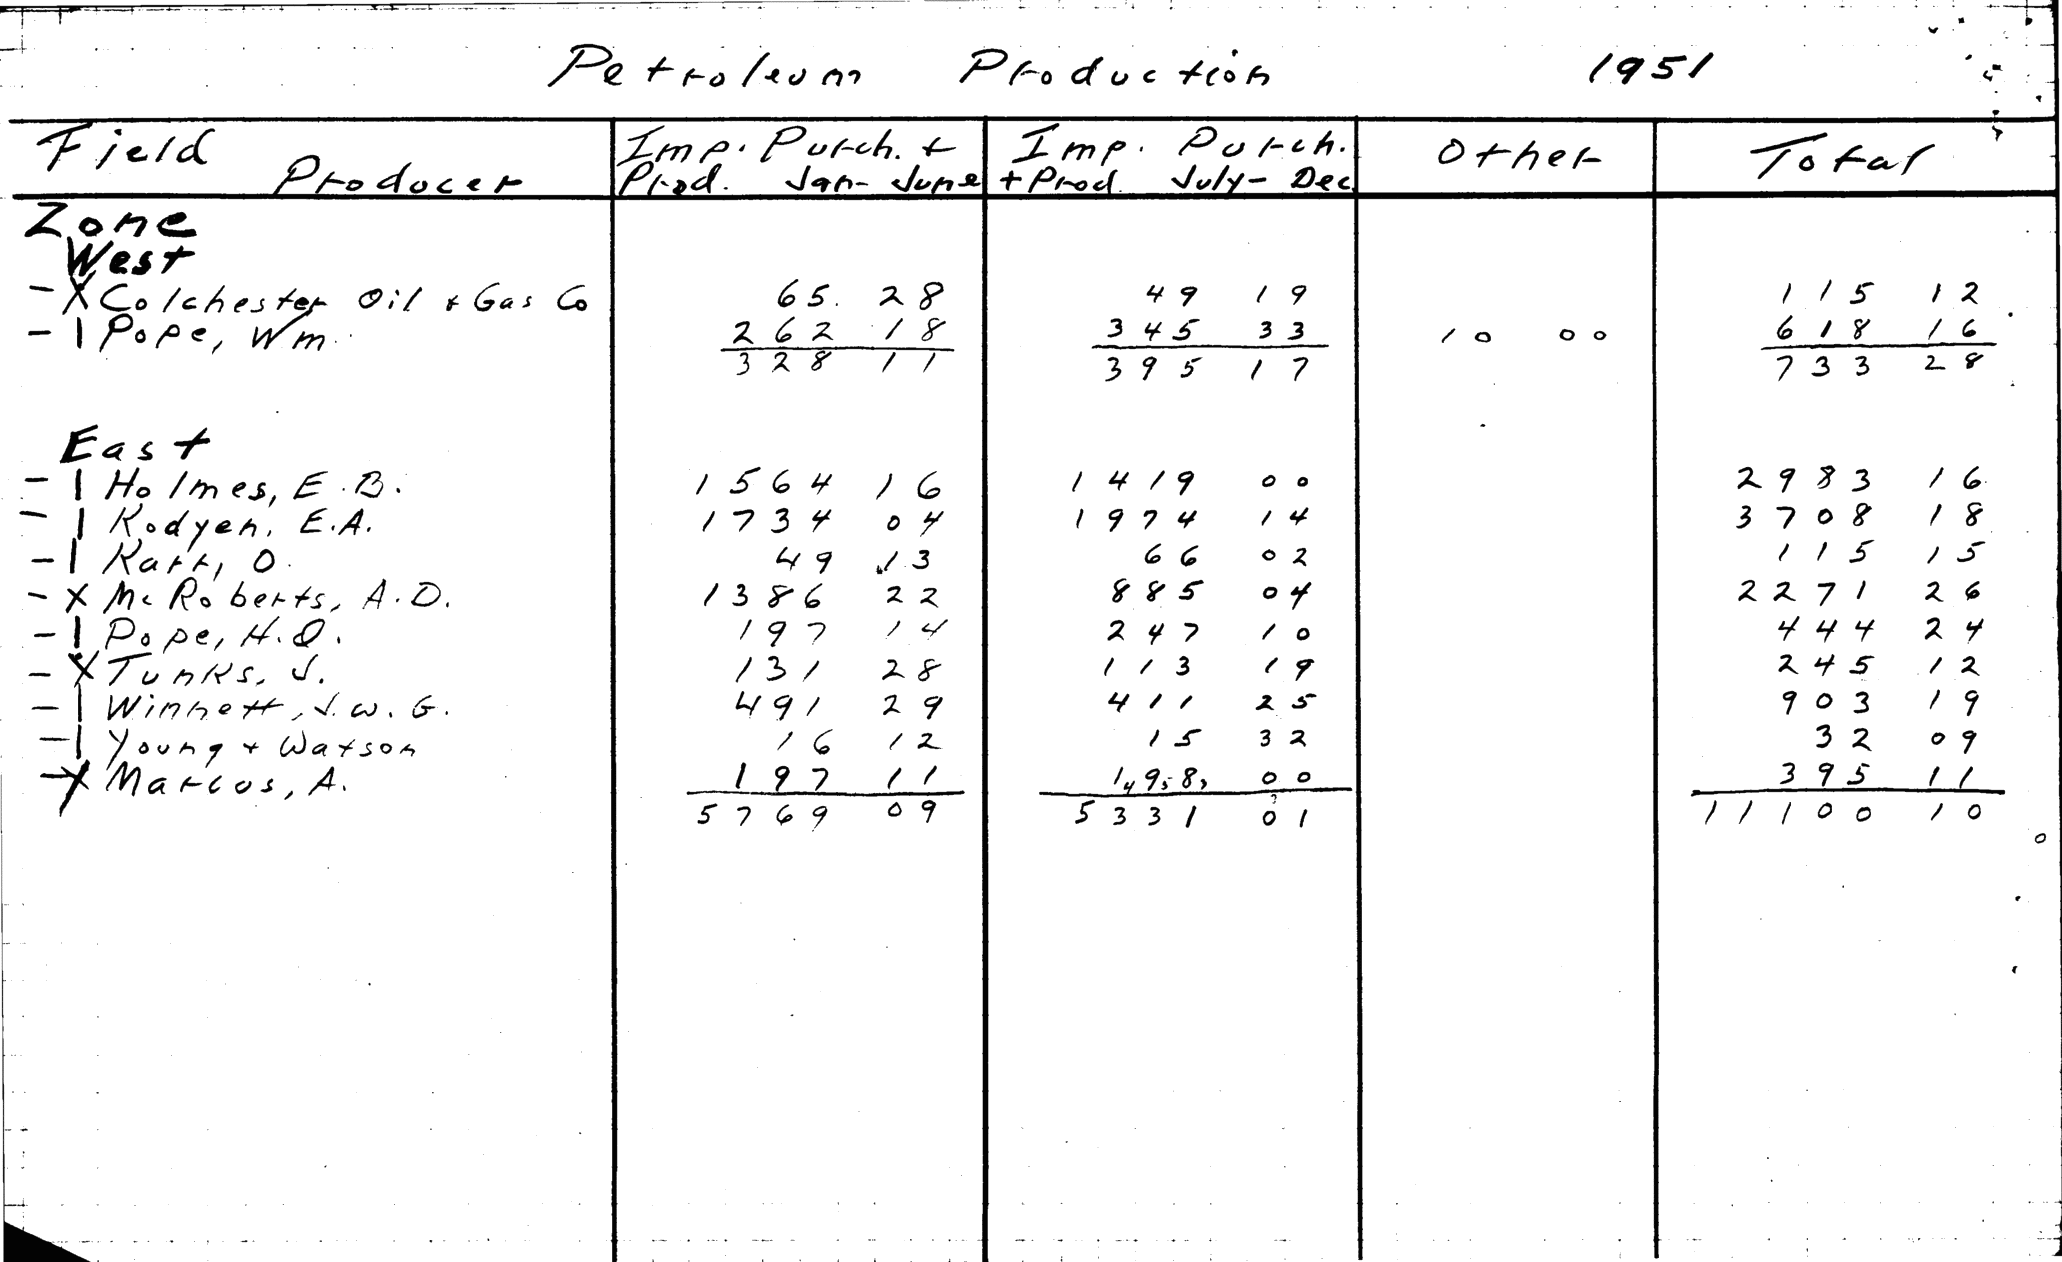 Petroleum Production 1951
Field Producer Imp. Purch. + Prod. Jan-June Imp. Purch. + Prod. July-Dec. Other Total
Zone
West
- X Colchester Oil + Gas Co 65. 28 49 19 115 12
- 1 Pope, Wm. 262 18 345 33 10 00 618 16
328 11 395 17 733 28
East
- 1 Holmes, E.B. 1564 16 1419 00 2983 16
- 1 Kodyen, E.A. 1734 04 1974 14 3708 18
- 1 Karr, O. 49 13 66 02 115 15
- X McRoberts, A.D. 1386 22 885 04 2271 26
- 1 Pope, H.O. 197 14 247 10 444 24
- X Tunks, J. 131 28 113 19 245 12
- 1 Winnett, J.W.G. 491 29 411 25 903 19
- 1 Young + Watson 16 12 15 32 32 09
- X Marcus, A. 197 11 198 00 395 11
5769 09 5331 01 11100 10